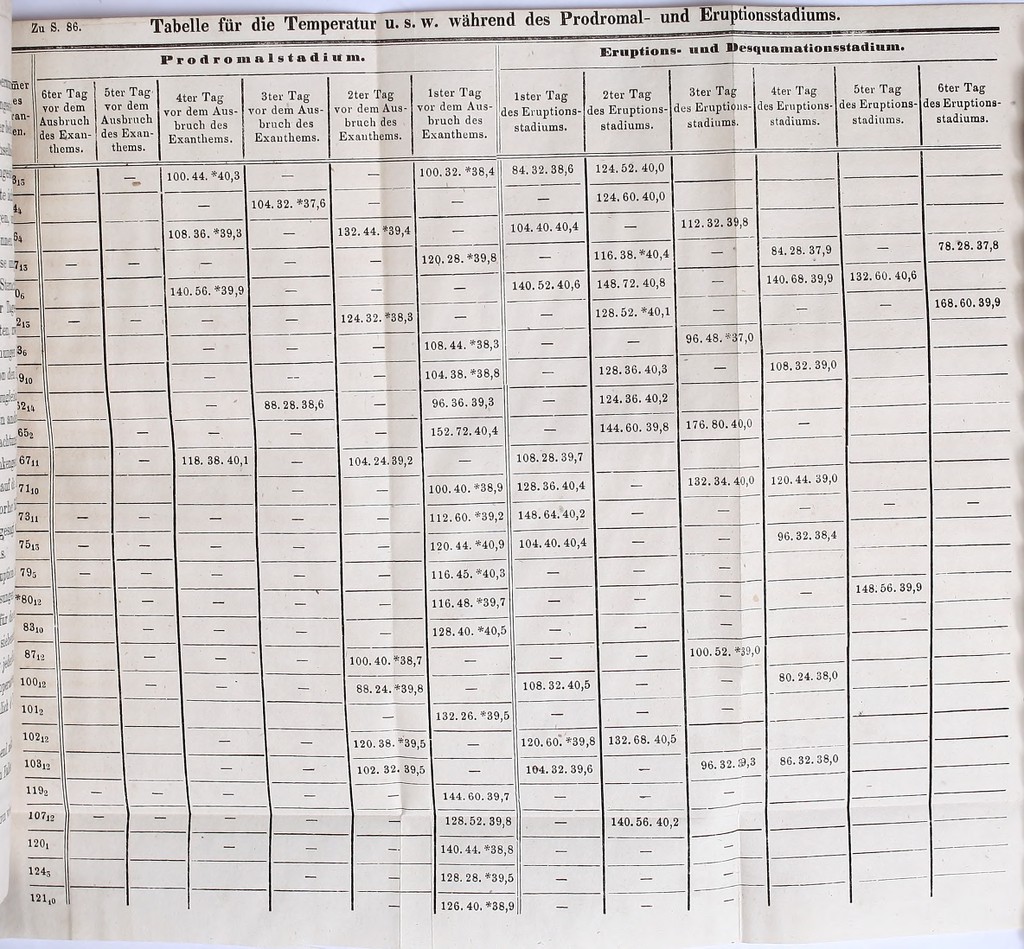 Zu S. 86.
Tabelle für die Temperatur u. s. w. während des Prodromal- und Eruptionsstadiums.
Prodromalstadium. Eruptions- und Desquamationsstadium.
6ter Tag vor dem Ausbruch des Exanthems.
5ter Tag vor dem Ausbruch des Exanthems.
4ter Tag vor dem Ausbruch des Exanthems.
3ter Tag vor dem Ausbruch des Exanthems.
2ter Tag vor dem Ausbruch des Exanthems.
1ster Tag vor dem Ausbruch des Exanthems.
1ster Tag des Eruptionsstadiums.
2ter Tag des Eruptionsstadiums.
3ter Tag des Eruptionsstadiums.
4ter Tag des Eruptionsstadiums.
5ter Tag des Eruptionsstadiums.
6ter Tag des Eruptionsstadiums.
— 100. 44. *40,3 — — 100. 32. *38,4 84. 32. 38,6 124. 52. 40,0
— 104. 32. *37,6 — — — 124. 60. 40,0
108. 36. *39,3 — 132. 44. *39,4 — 104. 40. 40,4 — 112. 32. 39,8
— — — — — 120. 28. *39,8 — 116. 38. *40,4 — 84. 28. 37,9 — 78. 28. 37,8
140. 56. *39,9 — — — 140. 52. 40,6 148. 72. 40,8 — 140. 68. 39,9 132. 60. 40,6
— — — — 124. 32. *38,3 — — 128. 52. *40,1 — — — 168. 60. 39,9
— — — 108. 44. *38,3 — — 96. 48. *37,0
— — — 104. 38. *38,8 — 128. 36. 40,3 — 108. 32. 39,0
— 88. 28. 38,6 — 96. 36. 39,3 — 124. 36. 40,2
65₂ — — — — 152. 72. 40,4 — 144. 60. 39,8 176. 80. 40,0 —
67₁₁ — 118. 38. 40,1 — 104. 24. 39,2 — 108. 28. 39,7
71₁₀ — — 100. 40. *38,9 128. 36. 40,4 — 132. 34. 40,0 120. 44. 39,0
73₁₁ — — — — — 112. 60. *39,2 148. 64. 40,2 — — — — —
75₁₃ — — — — — 120. 44. *40,9 104. 40. 40,4 — — 96. 32. 38,4
79₅ — — — — 116. 45. *40,3 — — — —
*80₁₂ — — — — 116. 48. *39,7 — — — — 148. 56. 39,9
83₁₀ — — — 128. 40. *40,5 — —
87₁₂ — — — 100. 40. *38,7 — — — 100. 52. *39,0
100₁₂ — — — 88. 24. *39,8 — 108. 32. 40,5 — — 80. 24. 38,0
101₂ — 132. 26. *39,5 — — —
102₁₂ — — 120. 38. *39,5 — 120. 60. *39,8 132. 68. 40,5
103₁₂ — — 102. 32. 39,5 — 104. 32. 39,6 — 96. 32. 39,3 86. 32. 38,0
119₂ — — — — — 144. 60. 39,7 — — —
107₁₂ — — — — — 128. 52. 39,8 — 140. 56. 40,2
120₁ — — — 140. 44. *38,8 — — —
124₅ — — 128. 28. *39,5 — — —
121₁₀ — 126. 40. *38,9 — — —